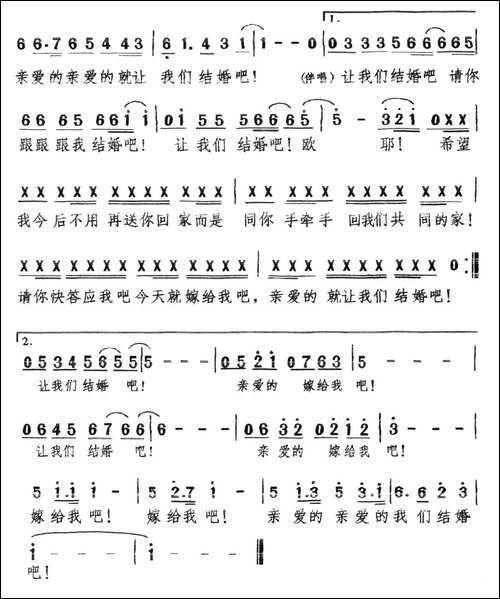 1.
6 6·7 6 5 4 4 3 | 6 1. 4 3 1 | 1 - - 0 | 0 3 3 3 5 6 6 6 6 5
亲爱的亲爱的就让 我们结婚吧！ (伴唱) 让我们结婚吧 请你
6 6 6 5 6 6 1 1 | 0 1 5 5 5 6 6 6 5 | 5 - 3 2 1 0 X X
跟跟跟我结婚吧！ 让我们结婚吧！欧 耶！ 希望
X X X X X X X X X X X X | X X X X X X X X X X X X
我今后不用再送你回家而是 同你手牵手回我们共同的家！
X X X X X X X X X X X X X X | X X X X X X X X X X 0 :||
请你快答应我吧今天就嫁给我吧，亲爱的就让我们结婚吧！
2.
0 5 3 4 5 6 5 5 | 5 - - - | 0 5 2 1 0 7 6 3 | 5 - - -
让我们结婚 吧！ 亲爱的 嫁给我 吧！
0 6 4 5 6 7 6 6 | 6 - - - | 0 6 3 2 0 2 1 2 | 3 - - -
让我们 结婚 吧！ 亲爱的 嫁给我 吧！
5 1·1 1 - | 5 2·7 1 - | 5 1·3 5 3·1 | 6·6 2 3
嫁给我吧！ 嫁给我吧！ 亲爱的 亲爱的我们结婚
1 - - - | 1 - - - ||
吧！